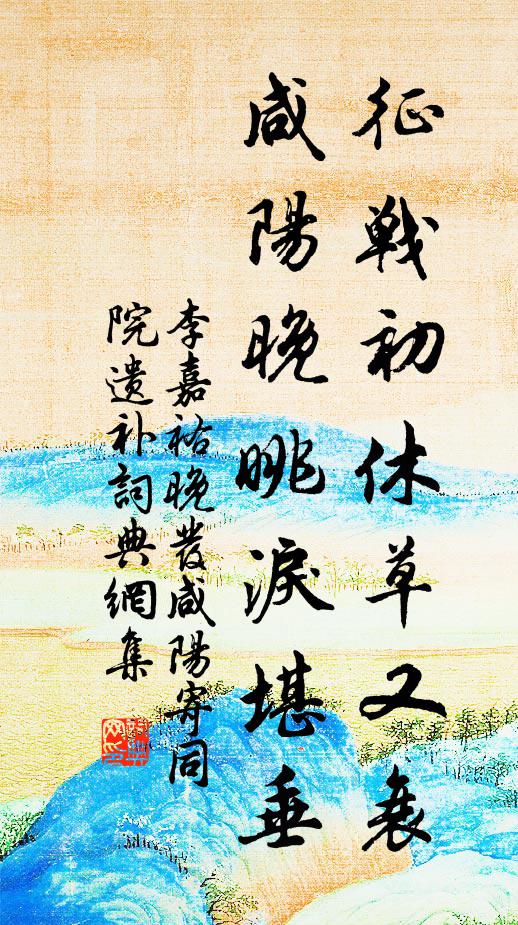 征戰初休草又衰
咸陽晚眺淚堪垂
李嘉祐晚發咸陽寄同
院遺补詞典網集